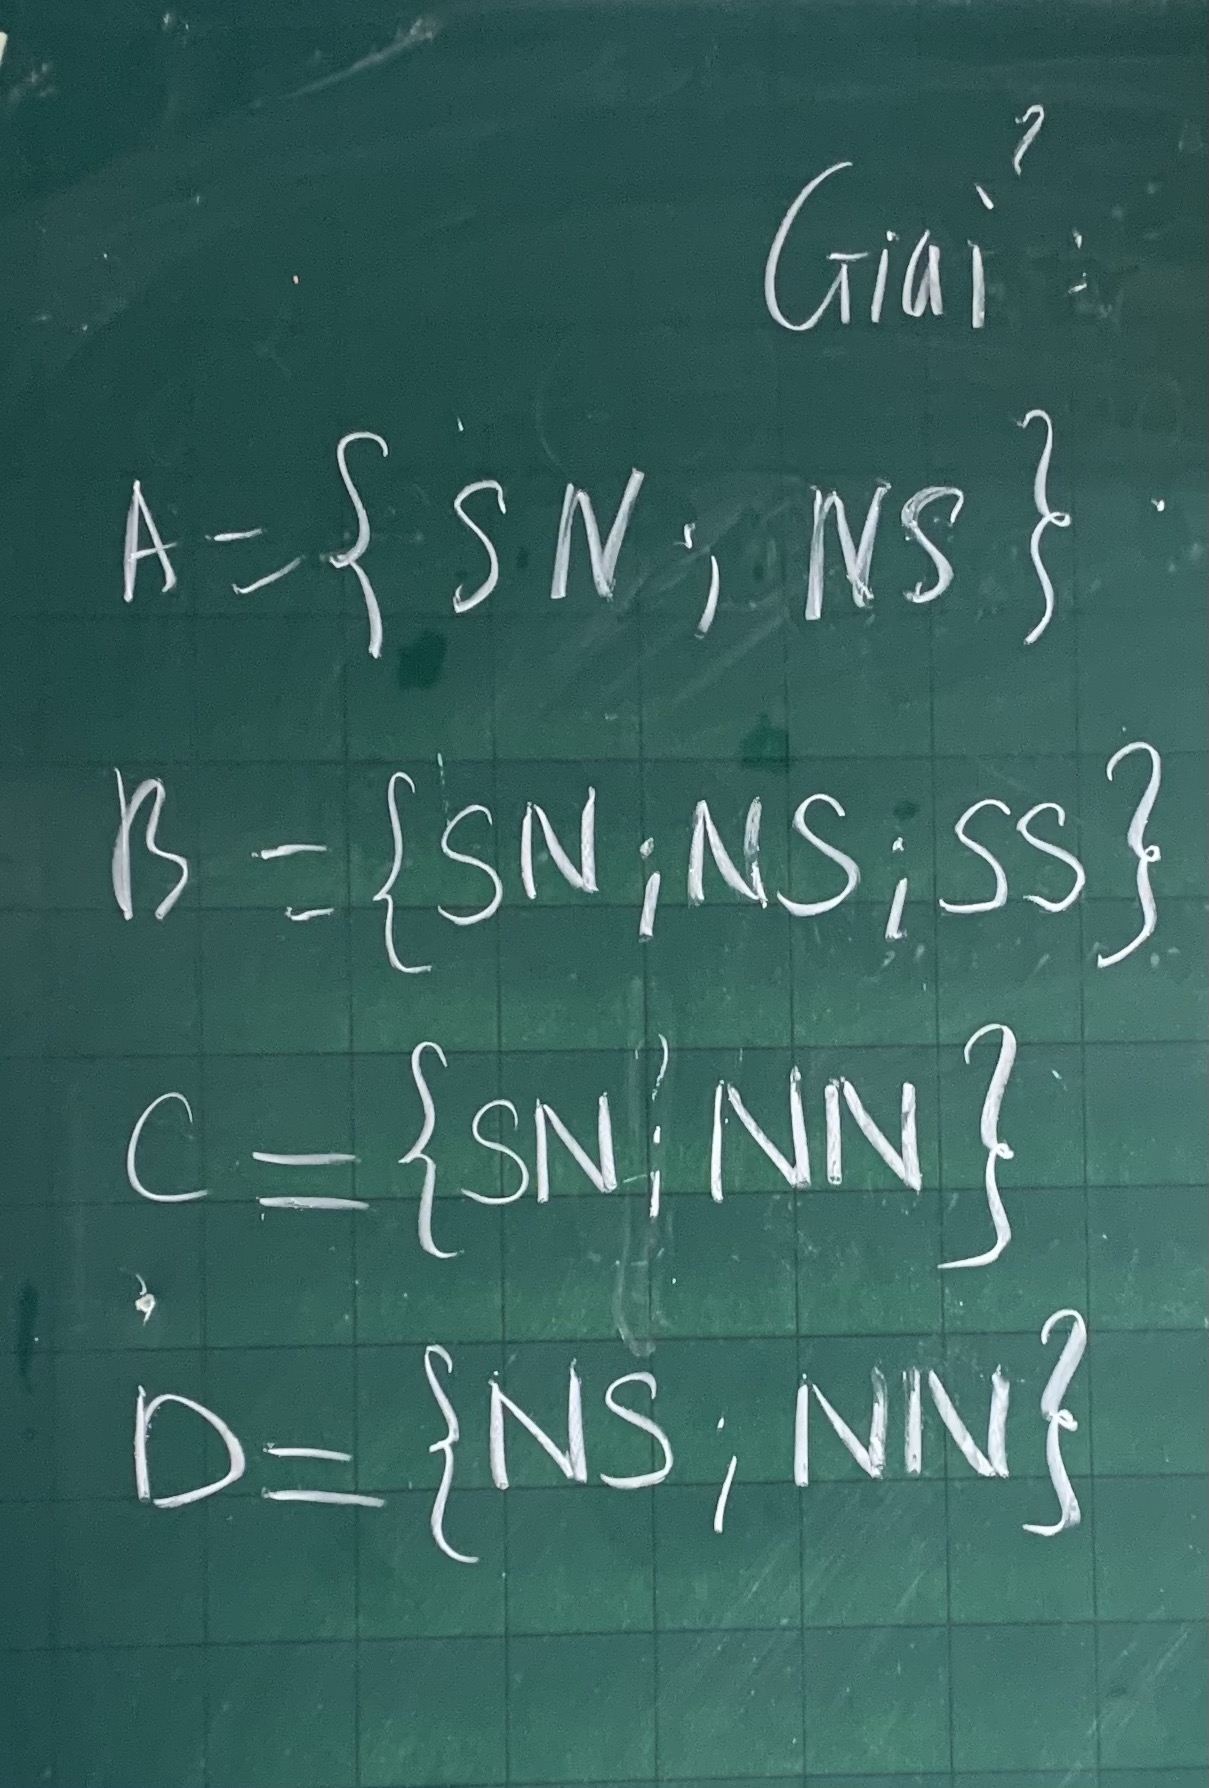 Giải :
A = { SN ; NS }
B = { SN ; NS ; SS }
C = { SN ; NN }
D = { NS ; NN }